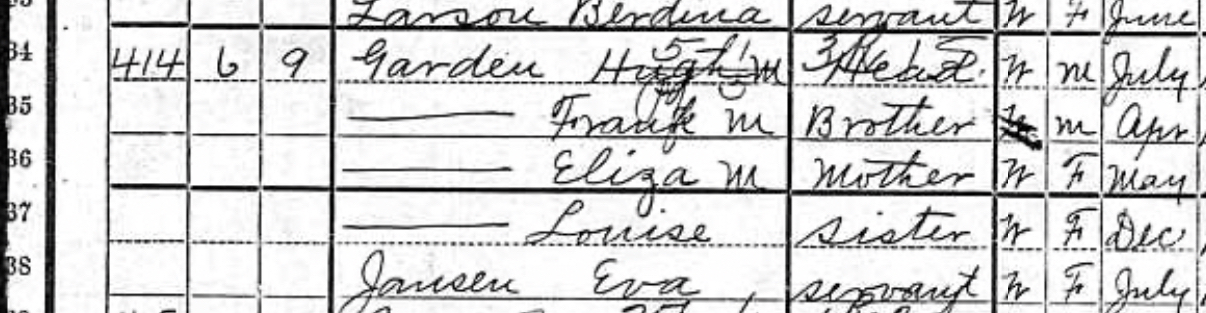 Larson Berdina servant W F June
34 414 6 9 Garden Hugh M Head W M July
35 Frank M Brother M Apr
36 Eliza M Mother W F May
37 Louise sister W F Dec
38 Jansen Eva servant W F July